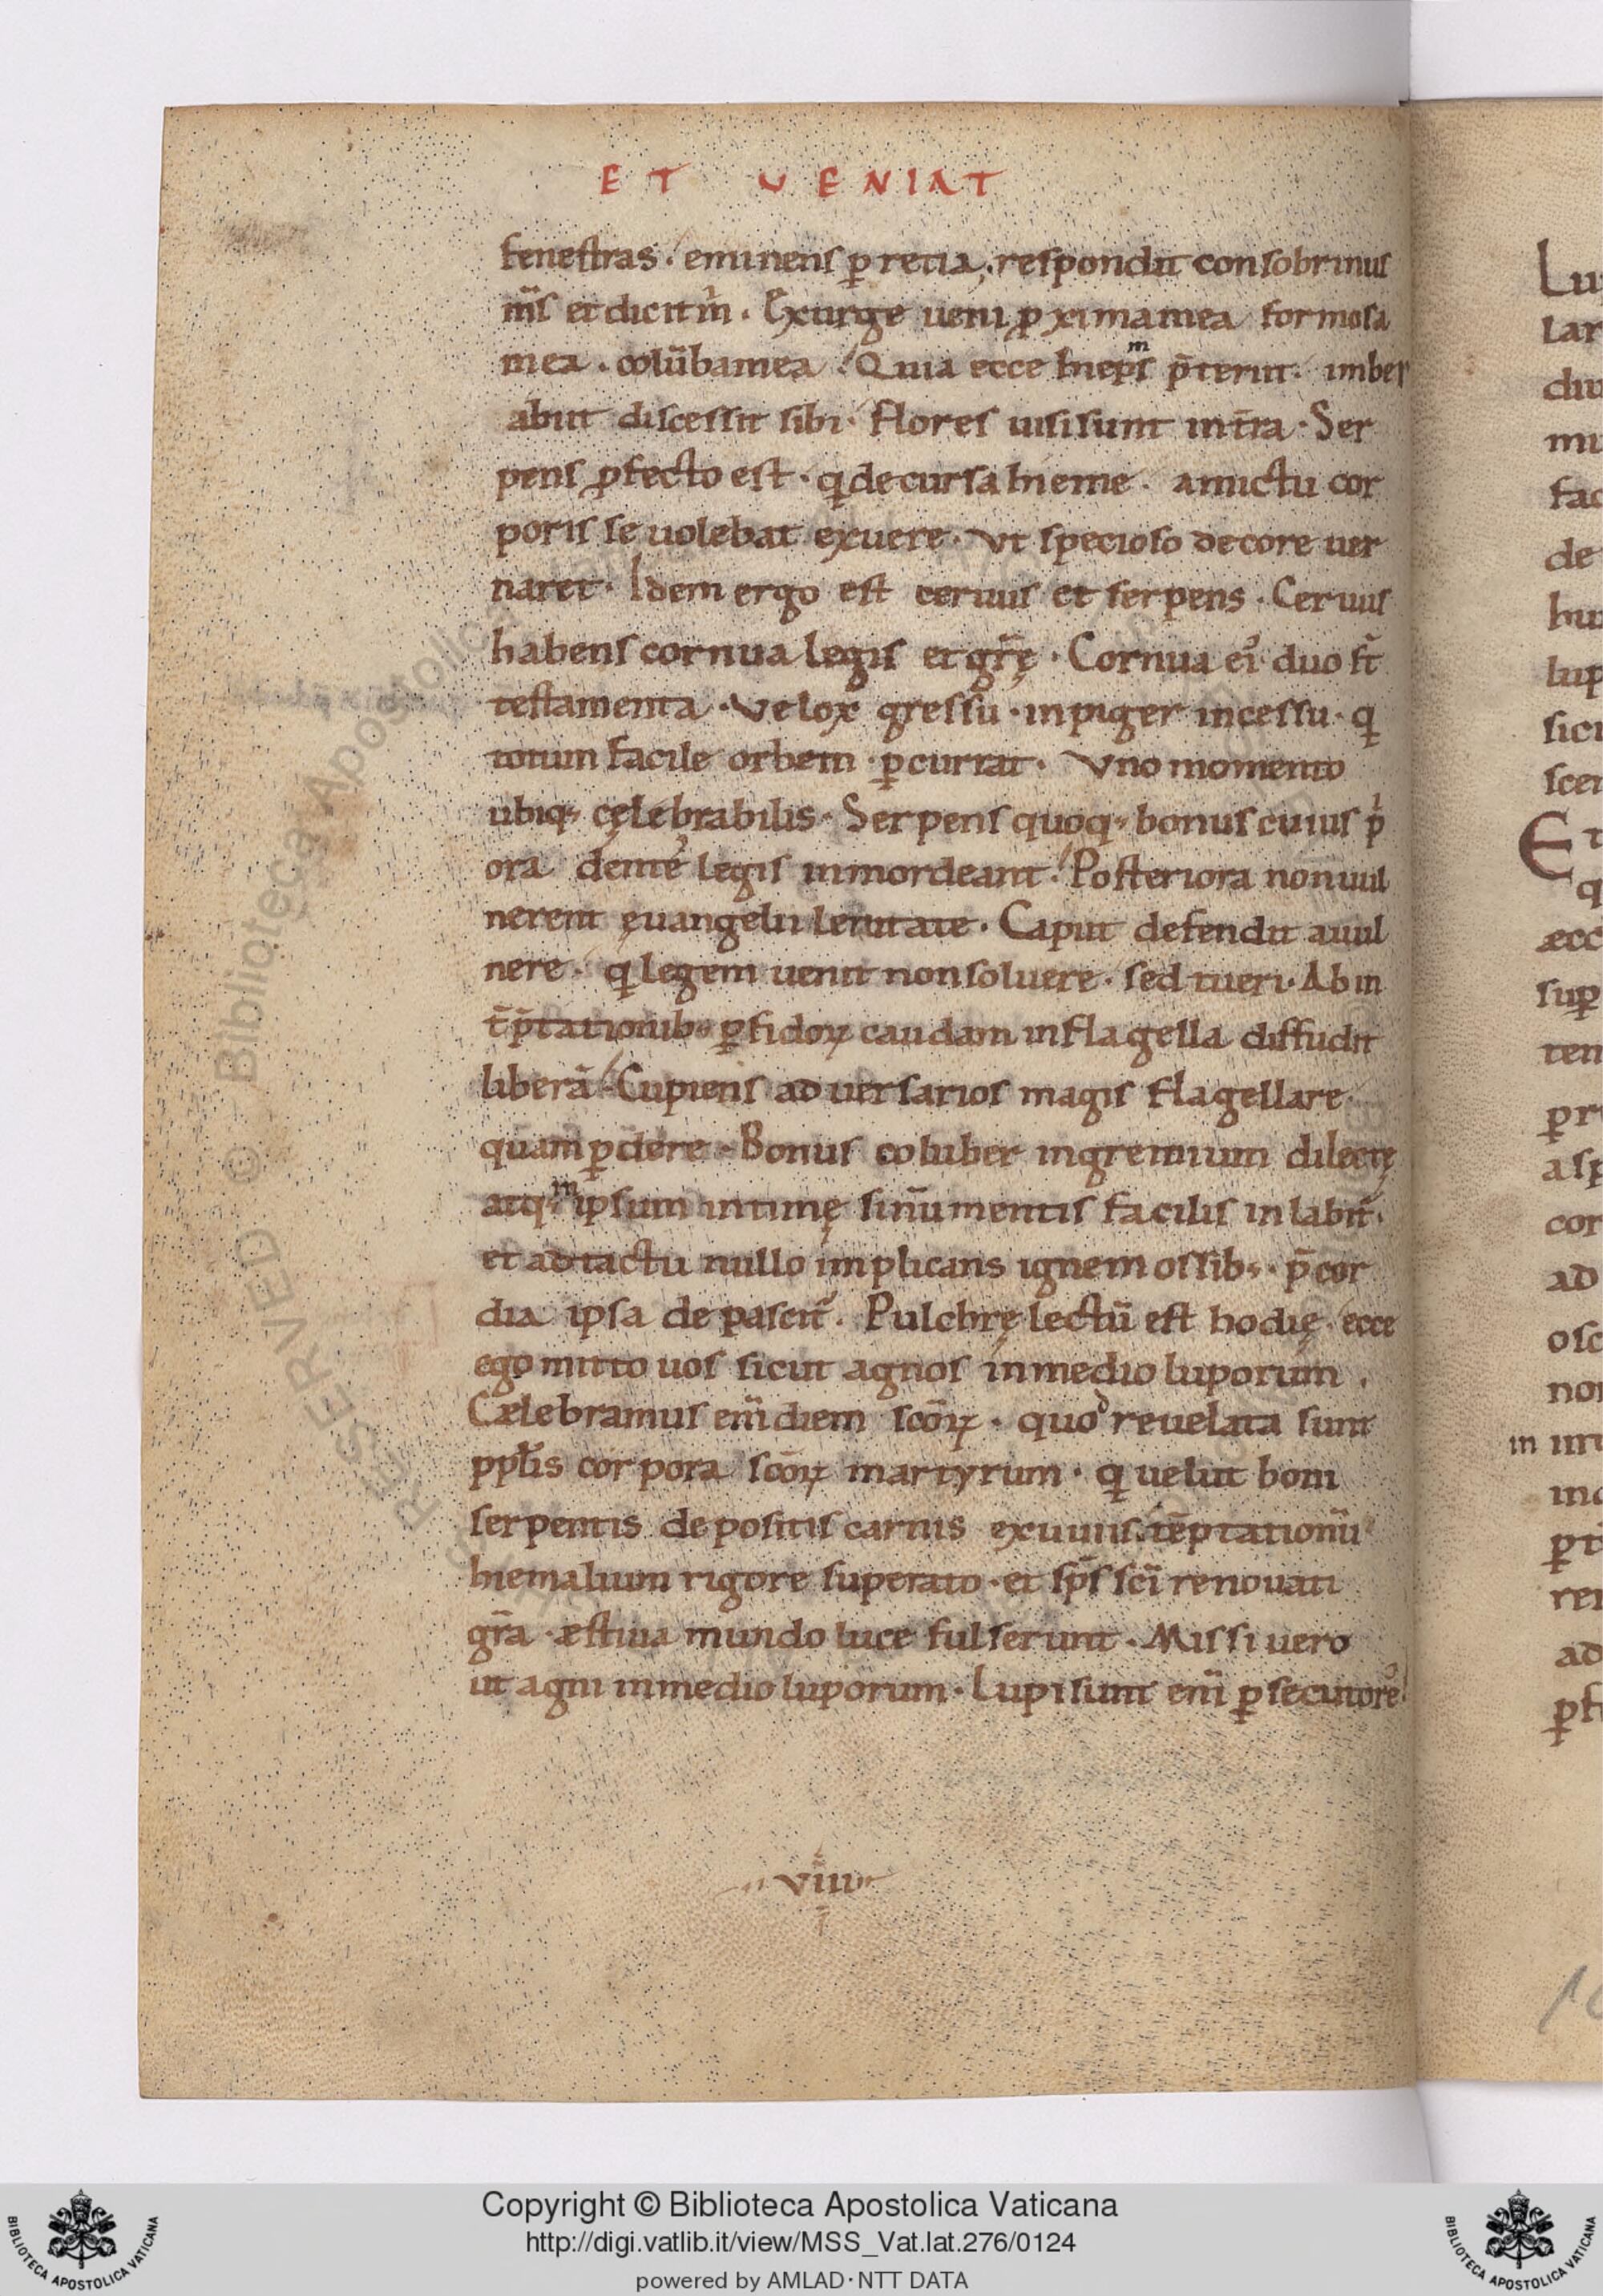 ET VENIAT
fenestras · eminens ꝑ retia, respondit consobrinus
m̅s et dicit m̅ · Exurge ueni ꝓxima mea formosa
mea · colūba mea · Quia ecce hiems p̄teriit · imber
abiit discessit sibi · flores uisi sunt in t̄ra · Ser
pens ꝓfecto est · q decursa hieme · amictu cor
poris se uolebat exuere · ut specioso decore uer
naret · Idem ergo est ceruus et serpens · Ceruus
habens cornua legis et gr̄ę · Cornua ei᾽ duo st̄
testamenta · Velox gressu · inpiger incessu · q
totum facile orbem ꝑcurrat · Vno momento
ubiq; cęlebrabilis · Serpens quoq; bonus cuius p
ora dente᾽ legis inmordeant · Posteriora non uul
nerent ęuangelii lenitate · Caput defendit a uul
nere · q legem uenit non soluere · sed tueri · Ab in
t̄p̄tationib; ꝑfidoꝝ caudam in flagella diffudit
liberā · Cupiens aduersarios magis flagellare
quam ꝑdere · Bonus coluber in gremium dilectę
atq; ipsum intimę sinūmentis facilis inlabit᷑ ·
et adtactu nullo implicans ignem ossib; · p̄cor
dia ipsa depascit᷑ · Pulchrę lectū est hodię ecce
ego mitto uos sicut agnos in medio luporum ·
Cælebramus enī diem sc̄oꝝ · quod reuelata sunt
pplis corpora sc̄oꝝ martyrum · q uelut boni
serpentis depositis carnis exuuiis · tēptationū
hiemalium rigore superato · et sp̄s sc̄i renouati
gr̄a · æstiua mundo luce fulserunt · Missi uero
ut agni in medio luporum · Lupi sunt enī ꝑsecutore᾽
viiii
Lu
lar
mu
fac
de
lup
sici
Et
q
æcc
suꝑ
ten
asp
cor
ad
osc
in
ad
Copyright © Biblioteca Apostolica Vaticana
http://digi.vatlib.it/view/MSS_Vat.lat.276/0124
powered by AMLAD·NTT DATA
BIBLIOTECA APOSTOLICA VATICANA
BIBLIOTECA APOSTOLICA VATICANA